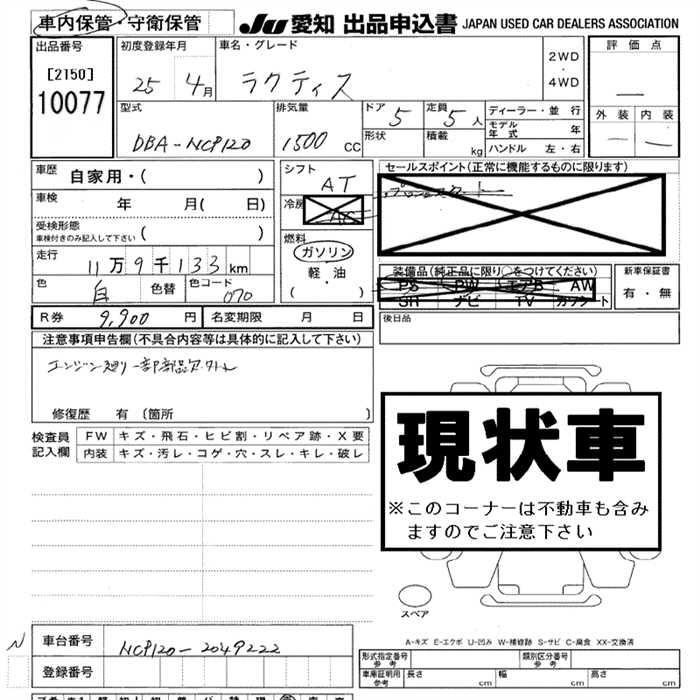 車内保管・守衛保管
JU 愛知 出品申込書 JAPAN USED CAR DEALERS ASSOCIATION
出品番号
[2150]
10077
初度登録年月
25 4月
車名・グレード
ラクティス
2WD
・
4WD
評価点
外装 内装
型式
DBA-NCP120
排気量
1500 CC
ドア 5
形状
定員 5人
積載 kg
ディーラー・並行
モデル年式 年
ハンドル 左・右
車歴 自家用・( )
車検 年 月( 日)
受検形態
車検付きのみ記入して下さい ( )
走行 11万9千133km
色 白 色替 色コード 070
シフト AT
冷房 AC
燃料
ガソリン
軽・油
( )
セールスポイント(正常に機能するものに限ります)
装備品(純正品に限り○をつけてください)
PS PW エアB AW
SR ナビ TV カワシート
新車保証書
有・無
R券 9,900円 名変期限 月 日
後日品
注意事項申告欄(不具合内容等は具体的に記入して下さい)
エンジン廻り一部部品欠品
修復歴 有〔箇所 〕
検査員記入欄
FW キズ・飛石・ヒビ割・リペア跡・X要
内装 キズ・汚レ・コゲ・穴・スレ・キレ・破レ
現状車
※このコーナーは不動車も含み
ますのでご注意下さい
スペア
A-キズ E-エクボ U-凹み W-補修跡 S-サビ C-腐食 XX-交換済
N 車台番号 NCP120-2049222
登録番号
形式指定番号 参考
類別区分番号 参考
車庫証明用 参考 長さ cm 幅 cm 高さ cm